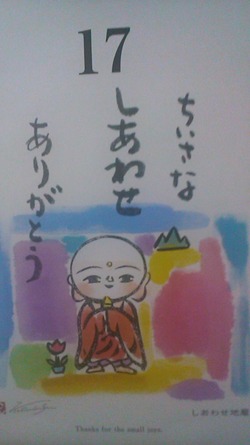 17
ちいさな
しあわせ
ありがとう
しあわせ地蔵
Thanks for the small ones.